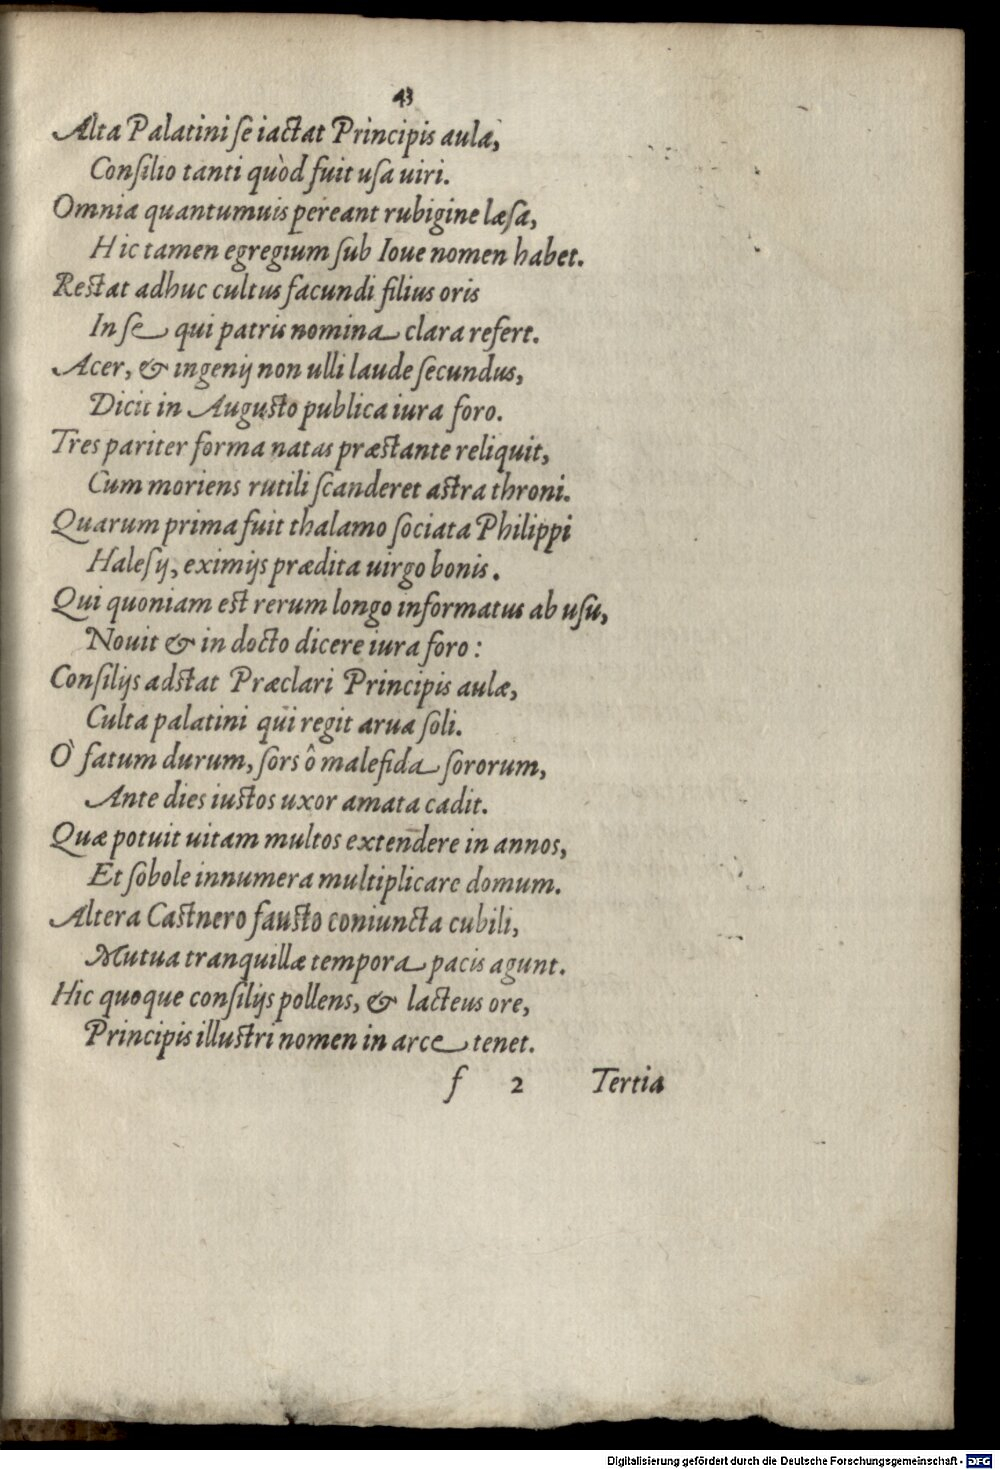 43
Alta Palatini se iactat Principis aula,
Consilio tanti quòd fuit usa uiri.
Omnia quantumuis pereant rubigine læsa,
Hic tamen egregium sub Ioue nomen habet.
Restat adhuc cultus facundi filius oris
In se qui patris nomina clara refert.
Acer, & ingenij non ulli laude secundus,
Dicit in Augusto publica iura foro.
Tres pariter forma natas præstante reliquit,
Cum moriens rutili scanderet astra throni.
Quarum prima fuit thalamo sociata Philippi
Halesij, eximijs prædita uirgo bonis.
Qui quoniam est rerum longo informatus ab usu,
Nouit & in docto dicere iura foro:
Consilijs adstat Præclari Principis aulæ,
Culta palatini qui regit arua soli.
Ò fatum durum, sors ô malefida sororum,
Ante dies iustos uxor amata cadit.
Quæ potuit uitam multos extendere in annos,
Et sobole innumera multiplicare domum.
Altera Castnero fausto coniuncta cubili,
Mutua tranquillæ tempora pacis agunt.
Hic quoque consilijs pollens, & lacteus ore,
Principis illustri nomen in arce tenet.
f 2 Tertia
Digitalisierung gefördert durch die Deutsche Forschungsgemeinschaft - DFG